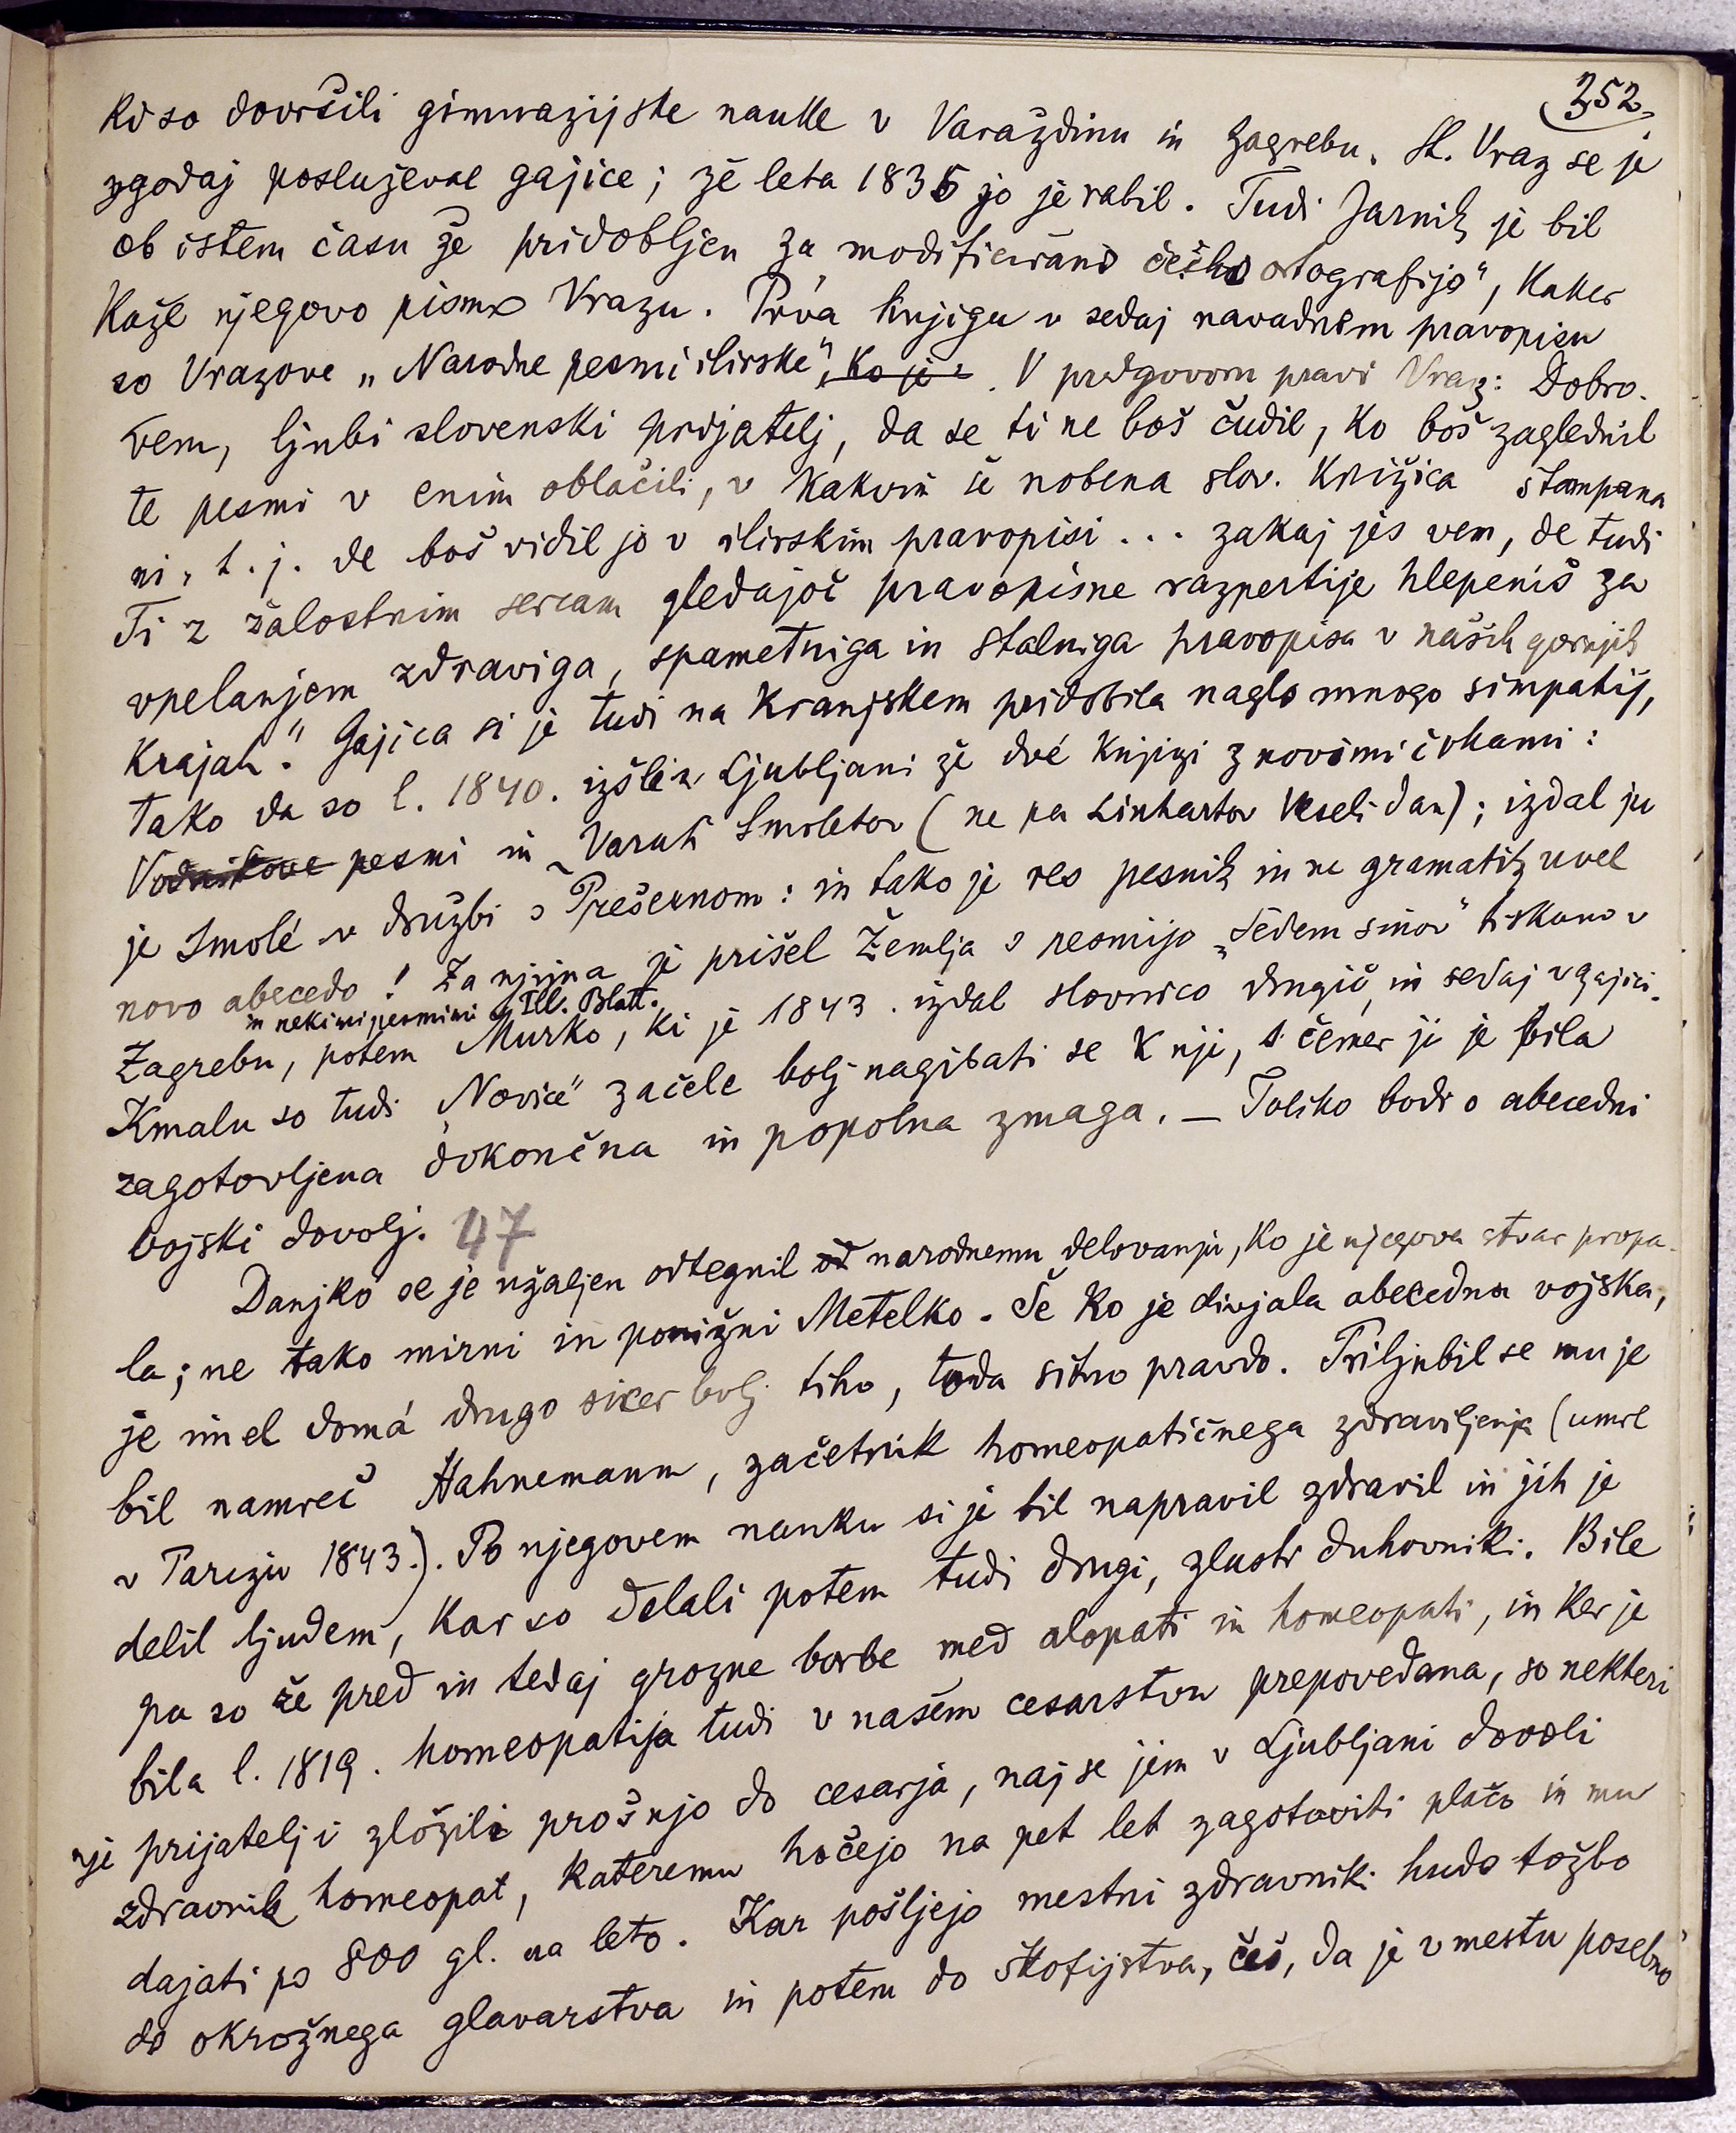 352
ki so dovršili gimnazijske nauke v Varaždinu in Zagrebu. St. Vraz se je
zgodaj posluževal gajice; že leta 1835 jo je rabil. Tudi Jarnik je bil
ob istem času že pridobljen za modificirano češko ortografijo", kaker
kaže njegovo pismo Vrazu. Prva knjiga v sedaj navadnem pravopisu
so Vrazove „Narodne pesmi ilirske", ko je. V predgovoru pravi Vraz: Dobro
vem, ljubi slovenski prijatelj, da se ti ne boš čudil, ko boš zaglednil
te pesmi v enim oblačili, v kakvim še nobena slov. knižica štampana
ni, t. j. de boš vidil jo v ilirskim pravopisi ... zakaj jes vem, de tudi
Ti z žalostnim sercam gledajoč pravopisne razpertije hlepeniš za
vpelanjem zdraviga, spametniga in stalniga pravopisa v naših gornjih
krajah." Gajica si je tudi na Kranjskem pridobila naglo mnogo simpatij,
tako da so l. 1840. izšli v Ljubljani že dvé knjigi z novimi črkami:
Vodnikove pesmi in Varuh Smoletov (ne pa Linhartov Veseli dan); izdal ju
je Smolé v družbi s Prešernom: in tako je res pesnik in ne gramatik uvel
novo abecedo! Za njima je prišel Žemlja s pesmijo „Sedem sinov" tiskano v
in nekimi pesmimi v Ill. Blatt.
Zagrebu, potem Murko, ki je 1843. izdal slovnico drugič, in sedaj v gajici.
Kmalu so tudi „Novice" začele bolj nagibati se k nji, s čemer ji je bila
zagotovljena dokončna in popolna zmaga. — Toliko bodi o abecedni
vojski dovolj. 47
Danjko se je užaljen odtegnil od narodnemu delovanju, ko je njegova stvar propa-
la; ne tako mirni in ponižni Metelko. Še ko je divjala abecedna vojska,
je imel domá drugo sicer bolj tiho, toda sitno pravdo. Priljubil se mu je
bil namreč Hahnemann, začetnik homeopatičnega zdravljenja (umrl
v Parizu 1843.). Po njegovem nauku si je bil napravil zdravil in jih je
delil ljudem, kar so delali potem tudi drugi, zlasti duhovniki. Bile
pa so že pred in tedaj grozne borbe med alopati in homeopati, in ker je
bila l. 1819. homeopatija tudi v našem cesarstvu prepovedana, so nekteri
nje prijatelji zložili prošnjo do cesarja, naj se jim v Ljubljani dovoli
zdravnik homeopat, kateremu hočejo na pet let zagotoviti plačo in mu
dajati po 800 gl. na leto. Kar pošljejo mestni zdravniki hudo tožbo
do okrožnega glavarstva in potem do škofijstva, češ, da je v mestu posebno